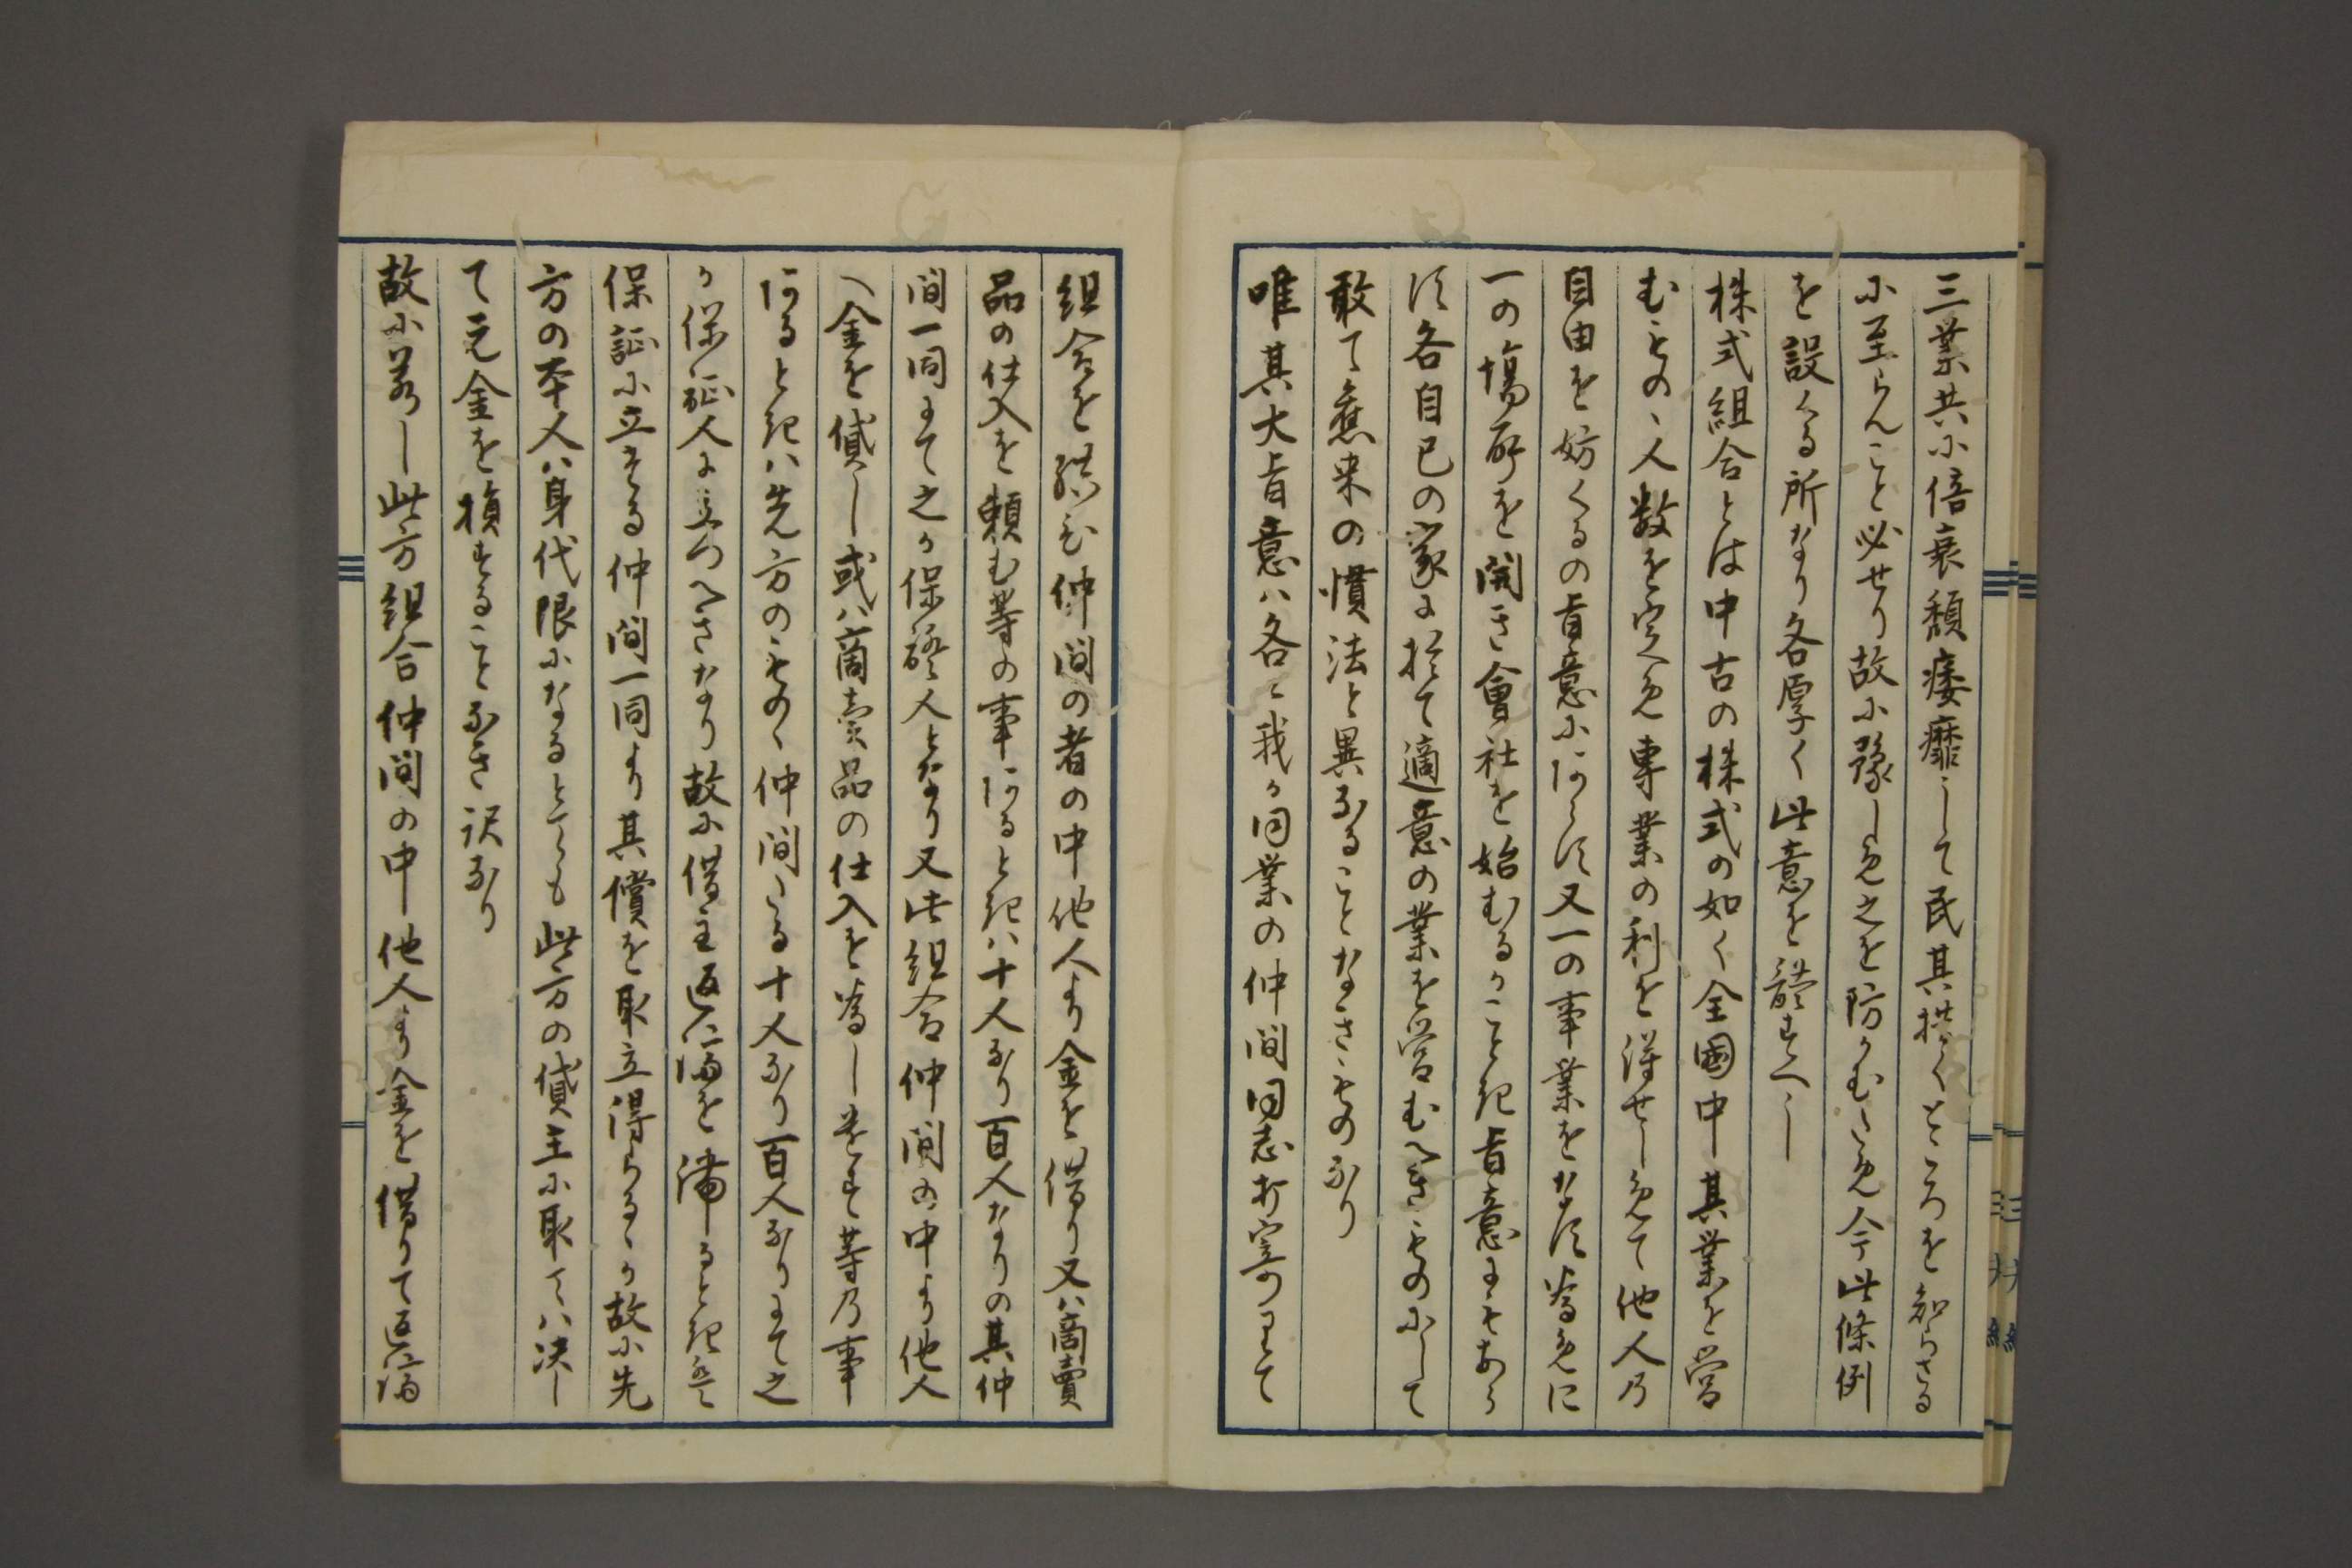 三業共に倍衰頽痿靡して民其拱くところを知らさる
に至らんこと必せり故に豫しめ之を防かむため今此條例
を設くる所なり各厚く此意を體すへし
株式組合とは中古の株式の如く全國中其業を營
むもの、人数を定め専業の利を得せしめて他人乃
自由を妨くるの旨意にあらす又一の事業をなす為めに
一の塲所を開き會社を始むるかことき旨意にもあら
す各自已の家に於て適意の業を営むへきものにして
敢て舊来の慣法と異なることなきものなり
唯其大旨意ハ各々我か同業の仲間同志打寄りて
組合を結ひ仲間の者の中他人より金を借り又ハ商賣
品の仕入を頼む等の事あるときハ十人なり百人なりの其仲
間一同にて之か保證人となり又此組合仲間の中より他人
へ金を貸し或ハ商賣品の仕入を為し遣す等乃事
あるときハ先方のもの、仲間たる十人なり百人なりにて之
か保証人に立つへきなり故に借主返済を滞るときは
保証に立たる仲間一同より其償を取立得らるゝか故に先
方の本人ハ身代限になるとても此方の貸主に取てハ决し
て元金を損することなき訳なり
故に若し此方組合仲間の中他人より金を借りて返済